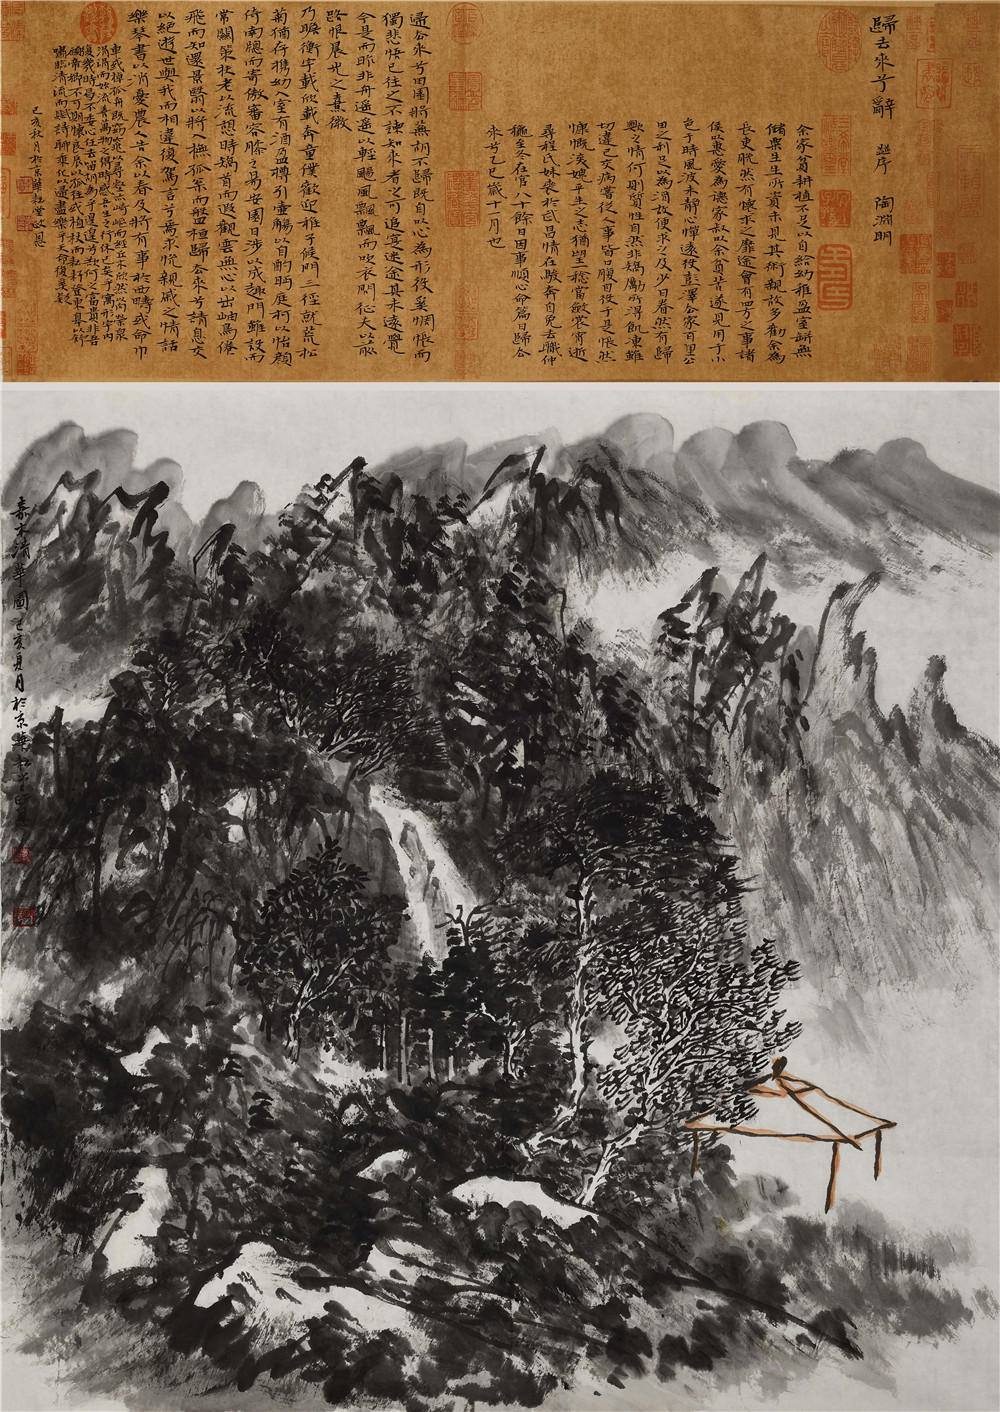 歸去來兮辭 並序 陶淵明
余家貧耕植不足以自給幼稚盈室缾無
儲粟生生所資未見其術親故多勸余為
長吏脫然有懷求之靡途會有四方之事諸
侯以惠愛為德家叔以余貧苦遂見用于小
邑于時風波未靜心憚遠役彭澤去家百里公
田之利足以為酒故便求之及少日眷然有歸
歟之情何則質性自然非矯勵所得飢凍雖
切違己交病嘗從人事皆口腹自役于是悵然
慷慨深媿平生之志猶望一稔當斂裳宵逝
尋程氏妹喪於武昌情在駿奔自免去職仲
秋至冬在官八十餘日因事順心命篇曰歸去
來兮乙巳歲十一月也
歸去來兮田園將蕪胡不歸既自以心為形役奚惆悵而
獨悲悟已往之不諫知來者之可追寔迷途其未遠覺
今是而昨非舟遙遙以輕颺風飄飄而吹衣問征夫以前
路恨晨光之熹微
乃瞻衡宇載欣載奔童僕歡迎稚子候門三徑就荒松
菊猶存攜幼入室有酒盈樽引壺觴以自酌眄庭柯以怡顏
倚南牕而寄傲審容膝之易安園日涉以成趣門雖設而
常關策扶老以流憩時矯首而遐觀雲無心以出岫鳥倦
飛而知還景翳以將入撫孤松而盤桓歸去來兮請息交
以絕遊世與我而相違復駕言兮焉求悅親戚之情話
樂琴書以消憂農人告余以春及將有事於西疇或命巾
車或棹孤舟既窈窕以尋壑亦崎嶇而經丘木欣欣以向榮泉
涓涓而始流善萬物之得時感吾生之行休已矣乎寓形宇內
復幾時曷不委心任去留胡為乎遑遑兮欲何之富貴非吾
願帝鄉不可期懷良辰以孤往或植杖而耘耔登東皋以舒
嘯臨清流而賦詩聊乘化以遽盡樂乎天命復奚疑
己亥秋月於京華
嘉木清華圖 己亥夏月於京華